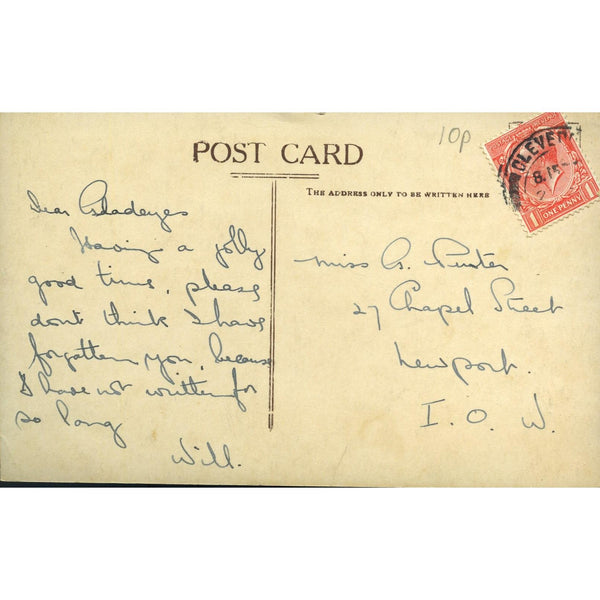 POST CARD
10p
CLEVED
8.15
ONE PENNY
1 1
THE ADDRESS ONLY TO BE WRITTEN HERE
Dear
Having a jolly
good time, please
dont think I have
forgotten you, because
I have not written for
so long
Will.
Miss G.
27 Chapel Street
Newport.
I. O. W.